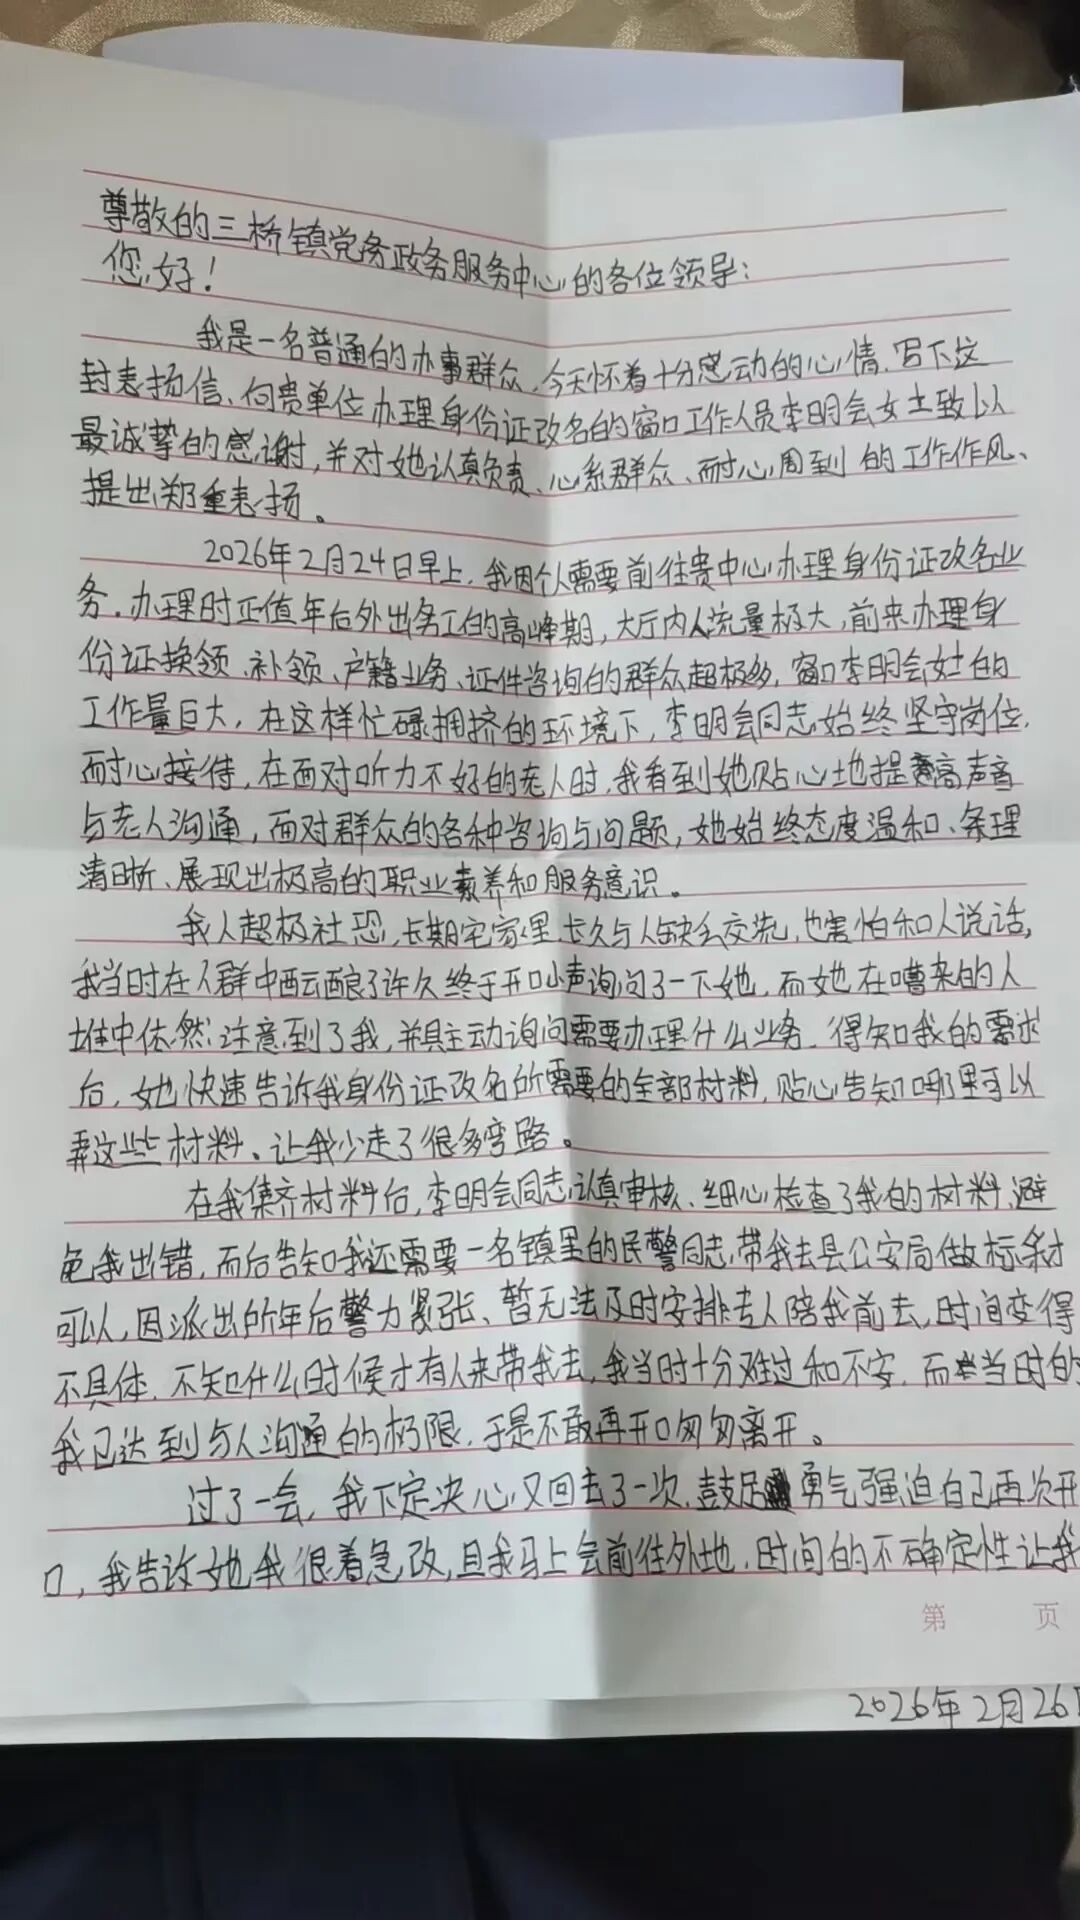 尊敬的三桥镇党务政务服务中心的各位领导：
您好！
我是一名普通的办事群众，今天怀着十分感动的心情，写下这
封表扬信、向贵单位办理身份证改名的窗口工作人员李明会女士致以
最诚挚的感谢，并对她认真负责、心系群众、耐心周到的工作作风、
提出郑重表扬。
2026年2月24日早上，我因个人需要前往贵中心办理身份证改名业
务，办理时正值年后外出务工的高峰期，大厅内人流量极大，前来办理身
份证换领、补领、户籍业务、证件咨询的群众超极多，窗口李明会女士的
工作量巨大，在这样忙碌拥挤的环境下，李明会同志始终坚守岗位，
耐心接待，在面对听力不好的老人时，我看到她贴心地提高声音
与老人沟通，面对群众的各种咨询与问题，她始终态度温和、条理
清晰、展现出极高的职业素养和服务意识。
我人超极社恐，长期宅家里，长久与人缺乏交流，也害怕和人说话，
我当时在人群中酝酿了许久终于开口小声询问了一下她，而她在嘈杂的人
堆中依然注意到了我，并且主动询问需要办理什么业务，得知我的需求
后，她快速告诉我身份证改名所需要的全部材料，贴心告知哪里可以
弄这些材料、让我少走了很多弯路。
在我集齐材料后，李明会同志认真审核、细心检查了我的材料，避
免我出错，而后告知我还需要一名镇里的民警同志，带我去县公安局做标采才
可以，因派出所年后警力紧张、暂无法及时安排专人陪我前去，时间变得
不具体，不知什么时候才有人来带我去，我当时十分难过和不安，而当时的
我已达到与人沟通的极限，于是不敢再开口匆匆离开。
过了一会，我下定决心又回去了一次，鼓足勇气强迫自己再次开
口，我告诉她我很着急改，且我马上会前往外地，时间的不确定性让我
第 页
2026年2月26日